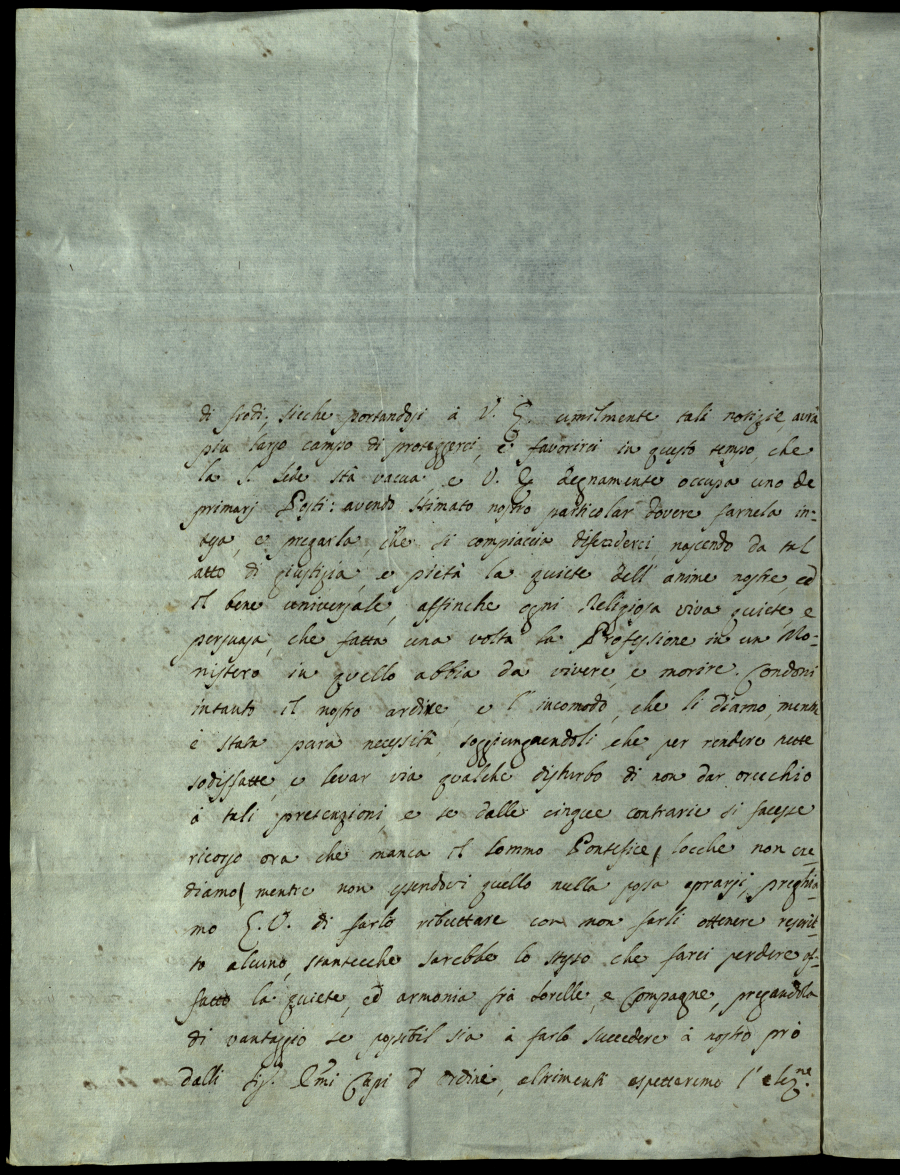 di frodi, sicche portandosi à V. E. umilmente tali notizie avrà
piu largo campo di proteggerci, e favorirci in questo tempo, che
la S. Sede stà vacua, e V. E. degnamente occupa uno de
primarj Posti: avendo stimato nostro particolar dovere farnela in=
tesa, e pregarla, che si compiaccia difenderci, nascendo da tal
atto di giustizia, e pietà la quiete dell' anime nostre, ed
il bene universale, affinche ogni Religiosa viva quieta e
persuasa, che fatta una volta la Professione in un Mo=
nistero in quello abbia da vivere, e morire. Condoni
intanto il nostro ardire, e l' incomodo, che li diamo, mentre
è stata pura necessità, soggiungnendoli, che per rendere tutte
sodisfatte, e levar via qualche disturbo di non dar orecchio
à tali pretenzioni, e se dalle cinque contrarie si facesse
ricorso ora che manca il Sommo Pontefice, (locche non cre=
diamo) mentre non essendoci quello nulla possa oprarsi, preghia=
mo E. V. di farlo ributtare con non farli ottenere rescrit=
to alcuno, stantecche sarebbe lo stesso che farci perdere af=
fatto la quiete, ed armonia frà Sorelle, e Compagne, pregandola
di vantaggio se possibil sia à farlo succedere à nostro prò
dalli Sig.ri E.mi Capi d' Ordine, altrimenti aspetteremo l' elez.ne